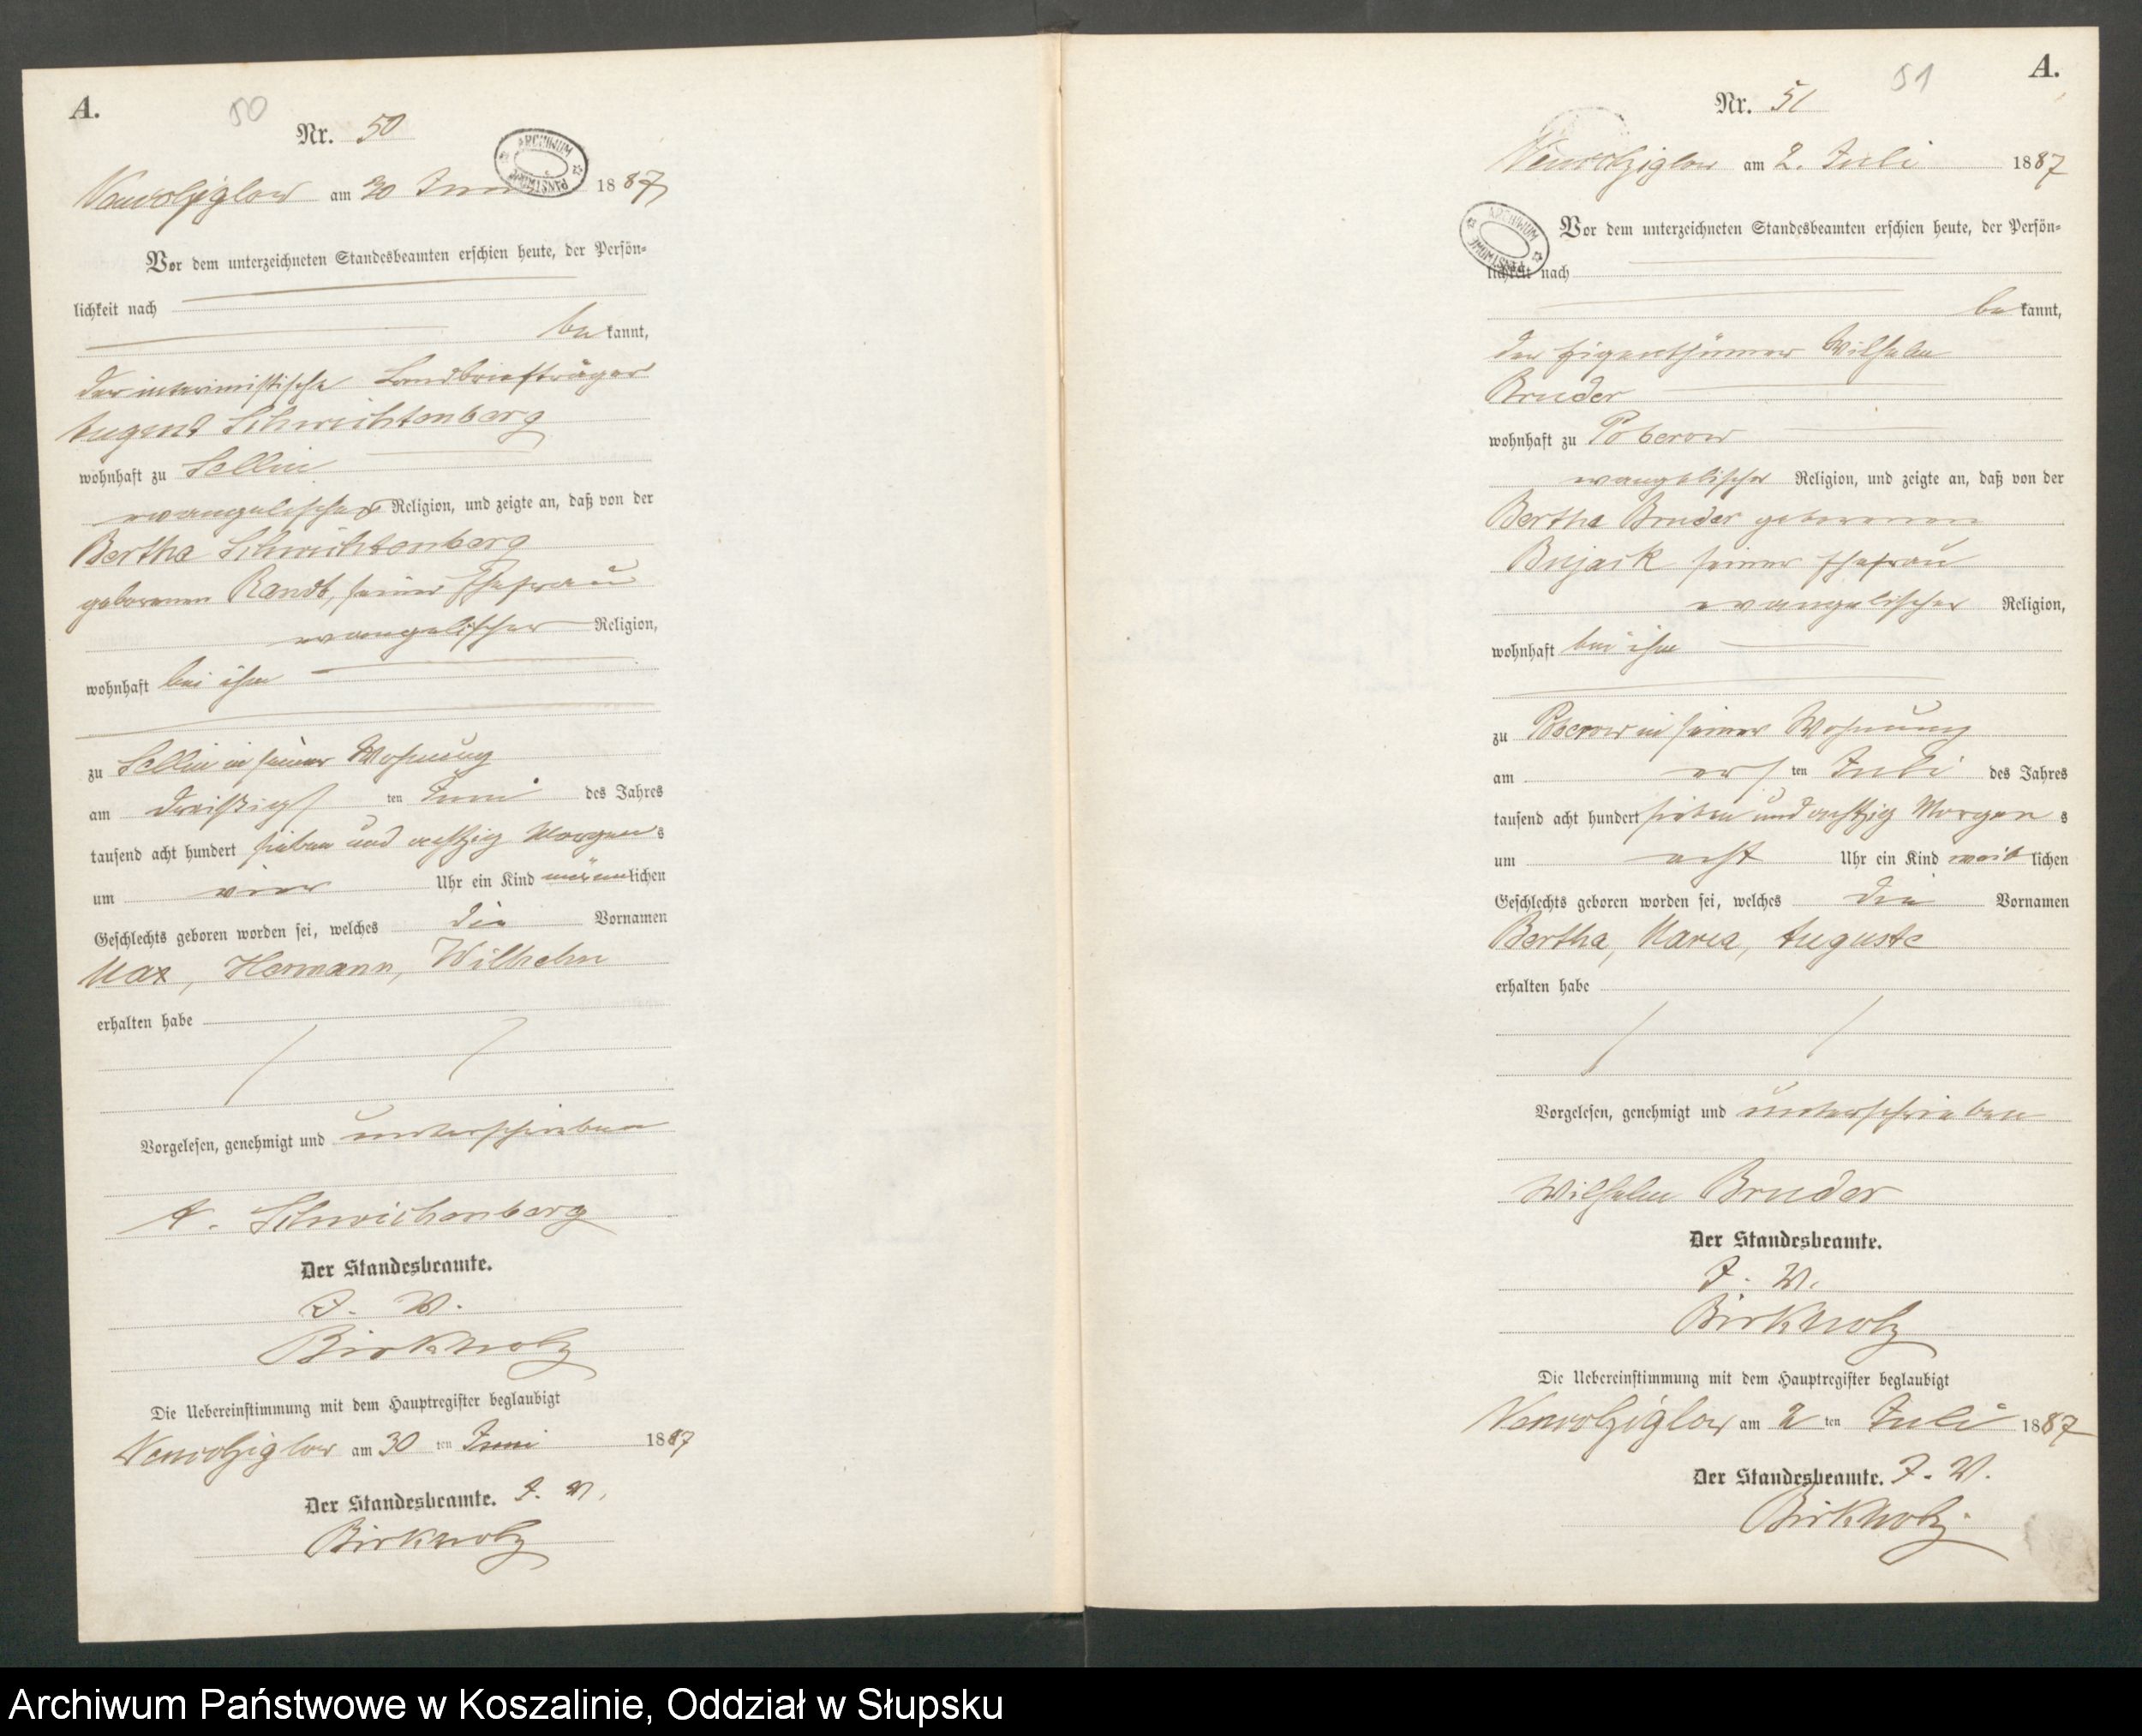 A.
50
Nr. 50
ARCHIWUM PAŃSTWOWE
Neuwolziglow am 30 Juni 1887
Vor dem unterzeichneten Standesbeamten erschien heute, der Persön-
lichkeit nach
be kannt,
der interimistische Landbriefträger
August Schwichtenberg
wohnhaft zu Sellin
evangelischer Religion, und zeigte an, daß von der
Bertha Schwichtenberg
geborenen Randt, seiner Ehefrau
evangelischer Religion,
wohnhaft bei ihm
zu Sellin in seiner Wohnung
am dreißigsten Juni des Jahres
tausend acht hundert sieben und achtzig Morgens
um vier Uhr ein Kind männlichen
Geschlechts geboren worden sei, welches die Vornamen
Max, Hermann, Wilhelm
erhalten habe
Vorgelesen, genehmigt und unterschrieben
A. Schwichenberg
Der Standesbeamte.
J. V.
Birkholz
Die Uebereinstimmung mit dem Hauptregister beglaubigt
Neuwolziglow am 30 ten Juni 1887
Der Standesbeamte. J. V.
Birkholz
A.
51
Nr. 51
Neuwolziglow am 2. Juli 1887
ARCHIWUM PAŃSTWOWE
Vor dem unterzeichneten Standesbeamten erschien heute, der Persön-
lichkeit nach
be kannt,
der Eigenthümer Wilhelm
Bruder
wohnhaft zu Poberow
evangelischer Religion, und zeigte an, daß von der
Bertha Bruder geborenen
Bujack seiner Ehefrau
evangelischer Religion,
wohnhaft bei ihm
zu Poberow in seiner Wohnung
am ersten Juli des Jahres
tausend acht hundert sieben und achtzig Morgens
um acht Uhr ein Kind weiblichen
Geschlechts geboren worden sei, welches die Vornamen
Bertha, Maria, Auguste
erhalten habe
Vorgelesen, genehmigt und unterschrieben
Wilhelm Bruder
Der Standesbeamte.
J. V.
Birkholz
Die Uebereinstimmung mit dem Hauptregister beglaubigt
Neuwolziglow am 2 ten Juli 1887
Der Standesbeamte. J. V.
Birkholz
Archiwum Państwowe w Koszalinie, Oddział w Słupsku